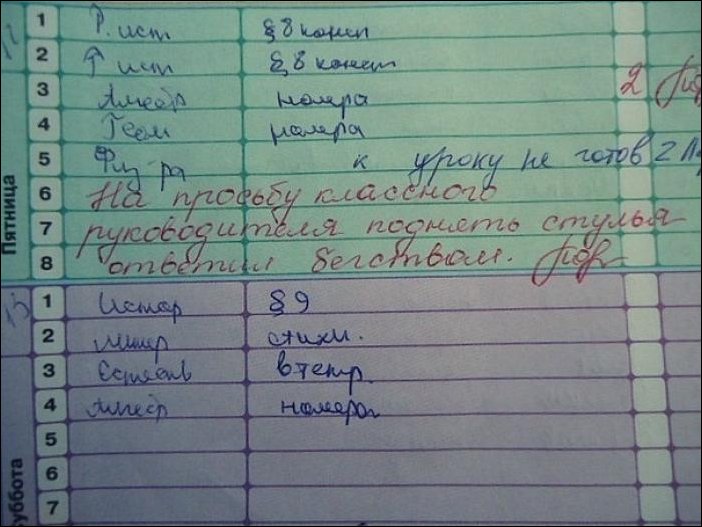 Пятница
1 Р. ист §8 консп
2 Р ист §8 консп
3 Алгебр номера 2
4 Геом номера
5 Физ-ра к уроку не готов 2
6 На просьбу классного
7 руководителя поднять стулья
8 ответил бегством.
уббота
1 Истор §9
2 Литер стихи.
3 Естеств в тетр.
4 Алгебр номера
5
6
7